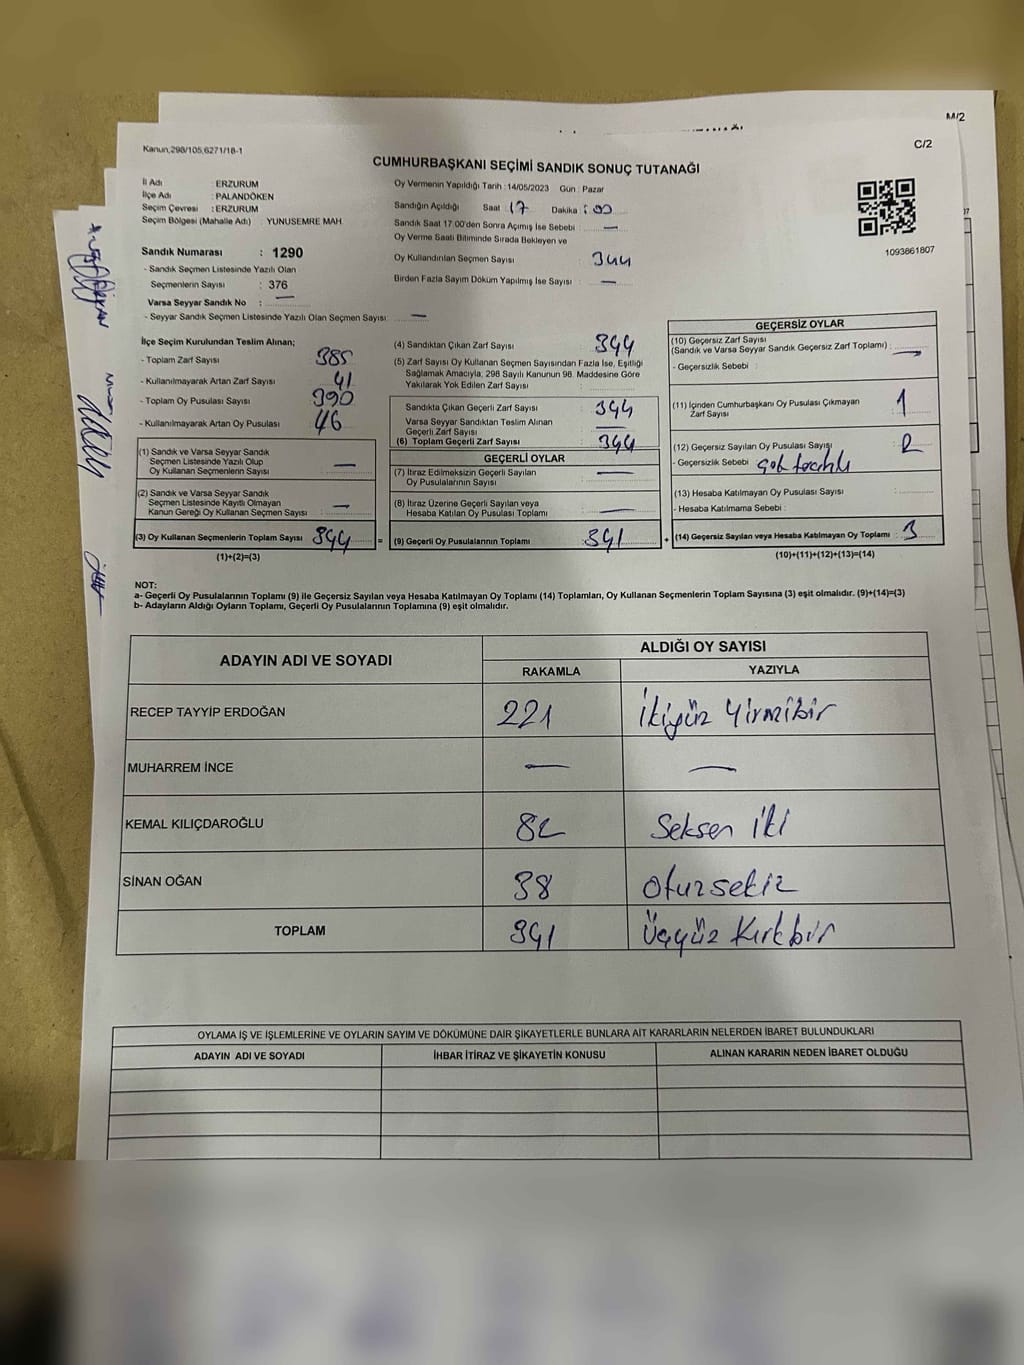 M/2
C/2
Kanun,298/105,6271/18-1
CUMHURBAŞKANI SEÇİMİ SANDIK SONUÇ TUTANAĞI
İl Adı : ERZURUM
İlçe Adı : PALANDÖKEN
Seçim Çevresi : ERZURUM
Seçim Bölgesi (Mahalle Adı) : YUNUSEMRE MAH.
Sandık Numarası : 1290
- Sandık Seçmen Listesinde Yazılı Olan
Seçmenlerin Sayısı : 376
Varsa Seyyar Sandık No : —
- Seyyar Sandık Seçmen Listesinde Yazılı Olan Seçmen Sayısı: —
Oy Vermenin Yapıldığı Tarih : 14/05/2023 Gün : Pazar
Sandığın Açıldığı Saat 17 Dakika : 00
Sandık Saat 17:00'den Sonra Açımış İse Sebebi : —
Oy Verme Saati Bitiminde Sırada Bekleyen ve
Oy Kullandırılan Seçmen Sayısı : 344
Birden Fazla Sayım Döküm Yapılmış İse Sayısı : —
1093861807
İlçe Seçim Kurulundan Teslim Alınan;
- Toplam Zarf Sayısı 385
- Kullanılmayarak Artan Zarf Sayısı 41
- Toplam Oy Pusulası Sayısı 390
- Kullanılmayarak Artan Oy Pusulası 46
(1) Sandık ve Varsa Seyyar Sandık
Seçmen Listesinde Yazılı Olup
Oy Kullanan Seçmenlerin Sayısı —
(2) Sandık ve Varsa Seyyar Sandık
Seçmen Listesinde Kayıtlı Olmayan
Kanun Gereği Oy Kullanan Seçmen Sayısı —
(3) Oy Kullanan Seçmenlerin Toplam Sayısı 344 =
(1)+(2)=(3)
(4) Sandıktan Çıkan Zarf Sayısı : 344
(5) Zarf Sayısı Oy Kullanan Seçmen Sayısından Fazla İse, Eşitliği
Sağlamak Amacıyla, 298 Sayılı Kanunun 98. Maddesine Göre
Yakılarak Yok Edilen Zarf Sayısı :
Sandıkta Çıkan Geçerli Zarf Sayısı : 344
Varsa Seyyar Sandıktan Teslim Alınan
Geçerli Zarf Sayısı : —
(6) Toplam Geçerli Zarf Sayısı : 344
GEÇERLİ OYLAR
(7) İtiraz Edilmeksizin Geçerli Sayılan
Oy Pusulalarının Sayısı : —
(8) İtiraz Üzerine Geçerli Sayılan veya
Hesaba Katılan Oy Pusulası Toplamı : —
(9) Geçerli Oy Pusulalarının Toplamı : 341 +
GEÇERSİZ OYLAR
(10) Geçersiz Zarf Sayısı
(Sandık ve Varsa Seyyar Sandık Geçersiz Zarf Toplamı) : —
- Geçersizlik Sebebi :
(11) İçinden Cumhurbaşkanı Oy Pusulası Çıkmayan
Zarf Sayısı : 1
(12) Geçersiz Sayılan Oy Pusulası Sayısı : 2
- Geçersizlik Sebebi
(13) Hesaba Katılmayan Oy Pusulası Sayısı :
- Hesaba Katılmama Sebebi :
(14) Geçersiz Sayılan veya Hesaba Katılmayan Oy Toplamı : 3
(10)+(11)+(12)+(13)=(14)
NOT:
a- Geçerli Oy Pusulalarının Toplamı (9) ile Geçersiz Sayılan veya Hesaba Katılmayan Oy Toplamı (14) Toplamları, Oy Kullanan Seçmenlerin Toplam Sayısına (3) eşit olmalıdır. (9)+(14)=(3)
b- Adayların Aldığı Oyların Toplamı, Geçerli Oy Pusulalarının Toplamına (9) eşit olmalıdır.
ADAYIN ADI VE SOYADI
ALDIĞI OY SAYISI
RAKAMLA YAZIYLA
RECEP TAYYİP ERDOĞAN 221 İkiyüz Yirmibir
MUHARREM İNCE — —
KEMAL KILIÇDAROĞLU 82 Seksen iki
SİNAN OĞAN 38 otuzsekiz
TOPLAM 341 Üçyüz Kırkbir
OYLAMA İŞ VE İŞLEMLERİNE VE OYLARIN SAYIM VE DÖKÜMÜNE DAİR ŞİKAYETLERLE BUNLARA AİT KARARLARIN NELERDEN İBARET BULUNDUKLARI
ADAYIN ADI VE SOYADI İHBAR İTİRAZ VE ŞİKAYETİN KONUSU ALINAN KARARIN NEDEN İBARET OLDUĞU